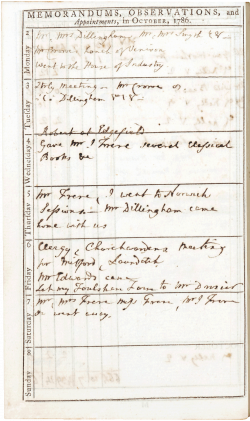 MEMORANDUMS, OBSERVATIONS, and
Appointments, in OCTOBER, 1786.
Monday 2
Mr. Mrs Dillingham, Mr, Mrs
of Venison
Went to the House of Industry
Tuesday 3
meeting Mr Crowe
Dillington
Wednesday 4
Robert at Edgefield
Gave Mr J Frere several Classical
Books &c
Thursday 5
Mr Frere, I went to Norwich
Sessions Mr Dillingham came
home with us
Friday 6
Clergy, Churchwardens meeting
for Mitford, Launditch
Mr Edwards came
Let my Foulsham Farm to Mr
Saturday 7
Mr, Mrs Frere Miss Frere, Mr J Frere
went away
Sunday 8